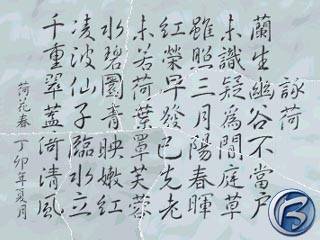 詠荷
蘭生幽谷不當戶
未識疑為間庭草
雖照三月陽春暉
紅榮早發已先老
未若荷葉罩芙蓉
水碧園青映嫩紅
凌波仙子臨水立
千重翠蓋倚清風
荷花春 丁卯年夏月